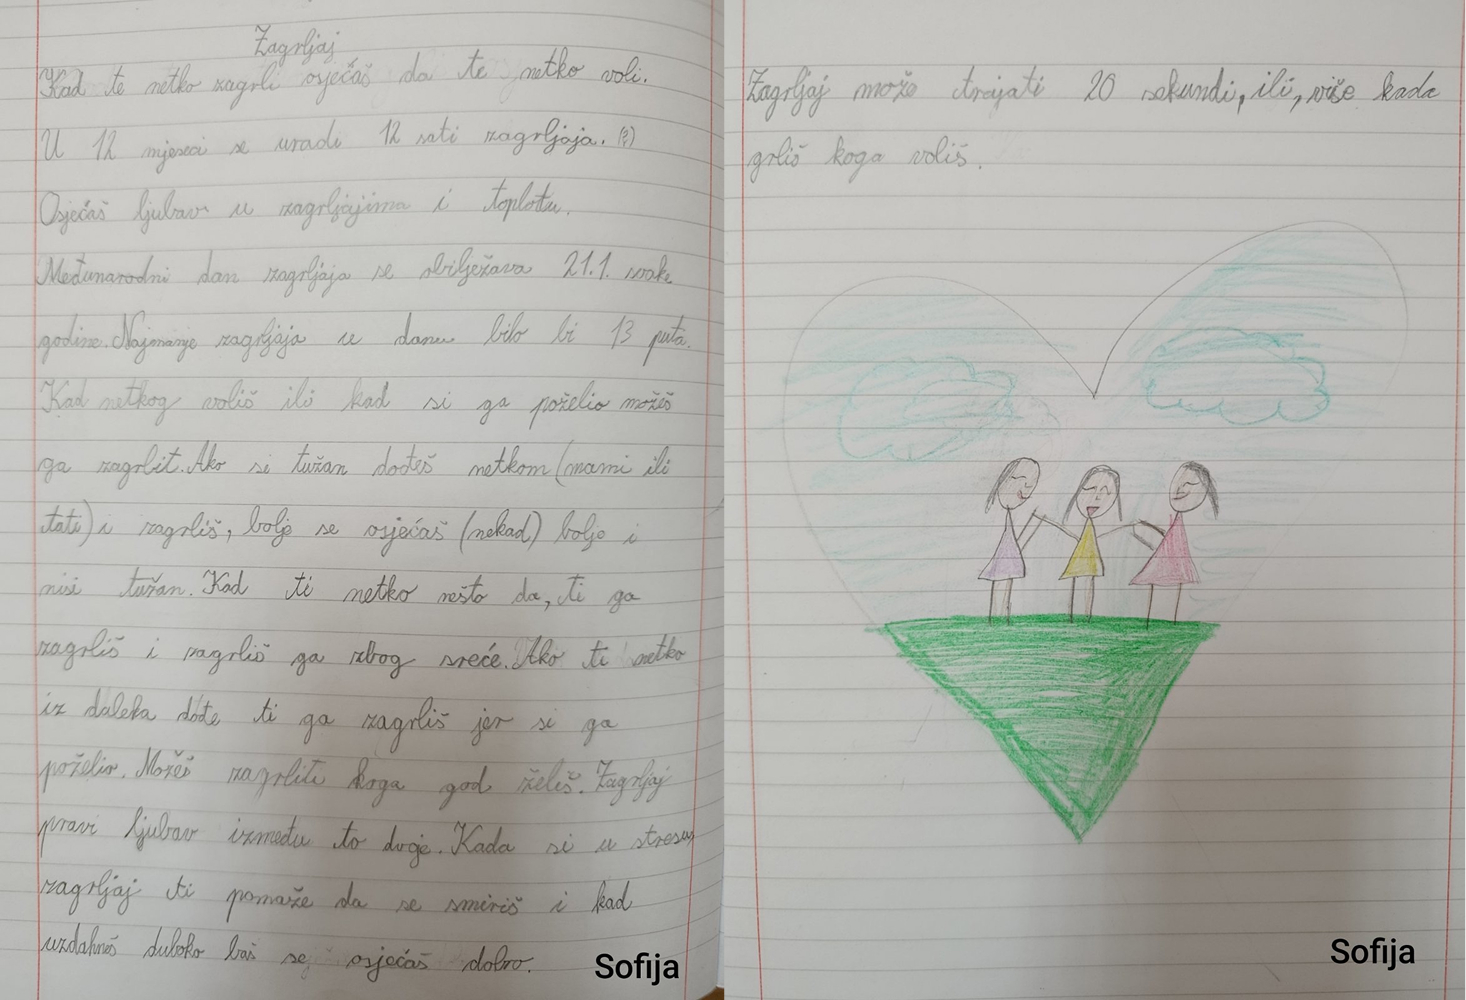 Zagrljaj
Kad te netko zagrli osjećaš da te netko voli.
U 12 mjeseci se uradi 12 sati zagrljaja. (?)
Osjećaš ljubav u zagrljajima i toplotu.
Međunarodni dan zagrljaja se obilježava 21.1. svake
godine. Najmanje zagrljaja u danu bilo bi 13 puta.
Kad netkog voliš ili kad si ga poželio možeš
ga zagrlit. Ako si tužan dođeš netkom (mami ili
tati) i zagrliš, bolje se osjećaš (nekad) bolje i
nisi tužan. Kad ti netko nešto da, ti ga
zagrliš i zagrliš ga zbog sreće. Ako ti netko
iz daleka dođe ti ga zagrliš jer si ga
poželio. Možeš zagrliti koga god želiš. Zagrljaj
pravi ljubav između to dvoje. Kada si u stresu,
zagrljaj ti pomaže da se smiriš i kad
uzdahneš duboko baš se osjećaš dobro.
Sofija
Zagrljaj može trajati 20 sekundi, ili, više kada
grliš koga voliš.
Sofija